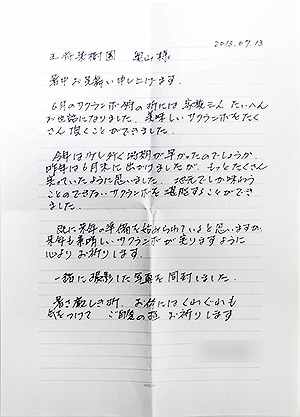 2013.07.13
王将果樹園 奥山様
暑中お見舞い申し上げます。
6月のサクランボ狩の折には家族三人たいへん
お世話になりました。美味しいサクランボをたく
さん頂くことができました。
今年は少し行く時期が早かったのでしょうか、
昨年は6月末に出かけましたが、もっとたくさん
実っていたように思いました。地元でしか味わう
ことのできないサクランボを堪能することができ
ました。
既に来年の準備を始められていると思いますが、
来年も素晴しいサクランボが実りますように
心よりお祈りします。
一緒に撮影した写真を同封しました。
暑さ厳しき折、お体にはくれぐれも
気をつけて ご自愛の程 お祈りします